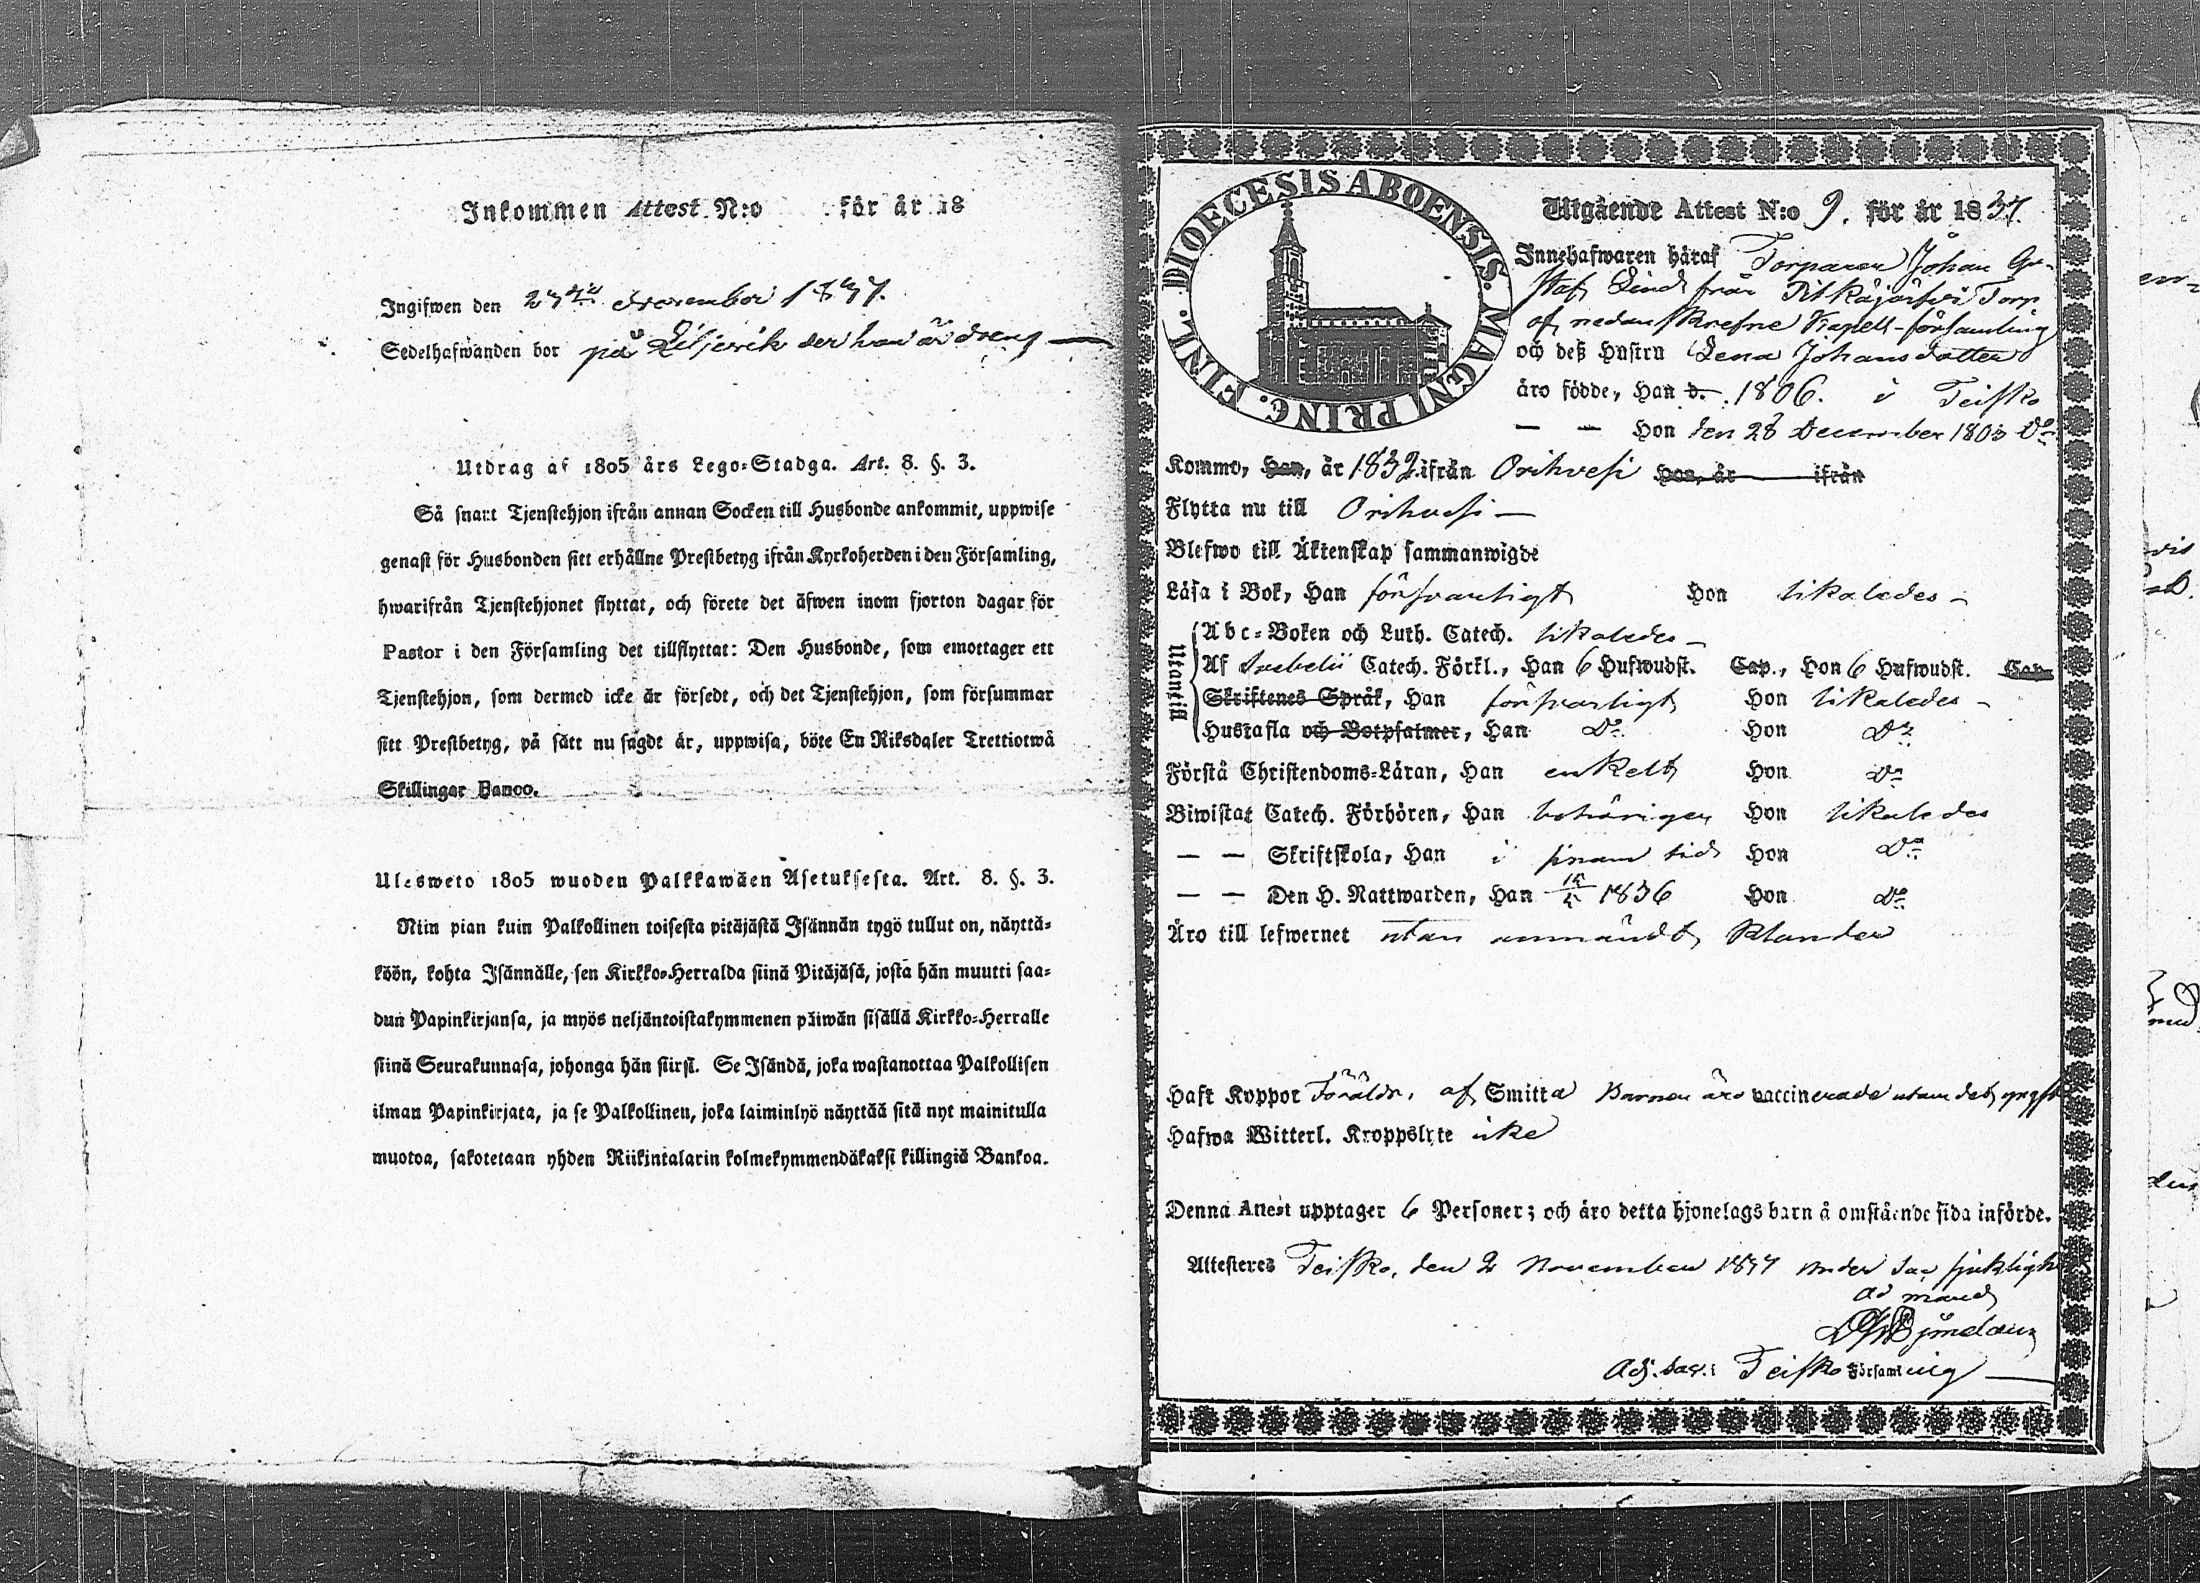 Inkommen Attest N:o för år 18
Ingifwen den 27de November 1837.
Sedelhafwanden bor på Liljerik der han är dreng —
Utdrag af 1805 års Lego-Stadga. Art. 8. §. 3.
Så snart Tjenstehjon ifrån annan Socken till Husbonde ankommit, uppwise
genast för Husbonden sitt erhållne Prestbetyg ifrån Kyrkoherden i den Församling,
hwarifrån Tjenstehjonet flyttat, och förete det äfwen inom fjorton dagar för
Pastor i den Församling det tillflyttat: Den Husbonde, som emottager ett
Tjenstehjon, som dermed icke är försedt, och det Tjenstehjon, som försummar
sitt Prestbetyg, på sätt nu sagdt är, uppwisa, böte En Riksdaler Trettiotwå
Skillingar Banco.
Ulesweto 1805 wuoden Palkkawäen Asetuksesta. Art. 8. §. 3.
Niin pian kuin Palkollinen toisesta pitäjästä Isännän tygö tullut on, näyttä-
köön, kohta Isännälle, sen Kirkko-Herralda siinä Pitäjäsä, josta hän muutti saa-
dun Papinkirjansa, ja myös neljäntoistakymmenen päiwän sisällä Kirkko-Herralle
siinä Seurakunnasa, johonga hän siirsi. Se Isändä, joka wastanottaa Palkollisen
ilman Papinkirjata, ja se Palkollinen, joka laiminlyö näyttää sitä nyt mainitulla
muotoa, sakotetaan yhden Riikintalarin kolmekymmendäkaksi killingiä Bankoa.
DIOECESIS ABOENSIS. MAGNI PRINC. FINL.
Utgående Attest N:o 9. för år 1837.
Innehafwaren häraf Torparen Johan Gu-
staf Lind från Pitkäjärfvi Torp
af nedanskrefne Kapell-församling
och deß Hustru Lena Johansdotter
äro födde, Han d. 1806. i Teisko
— — Hon den 28 December 1803 Do
Kommo, Han, år 1832 ifrån Orihvesi Hon, år ifrån
Flytta nu till Orihvesi —
Blefwo till Äktenskap sammanwigde
Läsa i Bok, Han försvarligt Hon likaledes —
Utantill
Abc-Boken och Luth. Catech. likaledes —
Af Svebelii Catech. Förkl., Han 6 Hufwudst. Cap., Hon 6 Hufwudst. Cap.
Skriftenes Språk, Han försvarligt Hon likaledes —
Hustafla och Botpsalmer, Han Do Hon Do
Förstå Christendoms-Läran, Han enkelt Hon Do
Biwistat Catech. Förhören, Han behörigen Hon likaledes
— — Skriftskola, Han i sinom tid Hon Do
— — Den H. Nattwarden, Han 1836 Hon Do
Äro till lefwernet utan anmäldt klander
Haft Koppor Föräldr. af Smitta Barnen äro vaccinerade utom det yngst
Hafwa Witterl. Kroppslyte icke
Denna Attest upptager 6 Personer; och äro detta hjonelags barn å omstående sida införde.
Attesteres Teisko, den 2 November 1837 under Sac sjuklighet
Ad mand
Adj. Sac. i Teisko Församling —